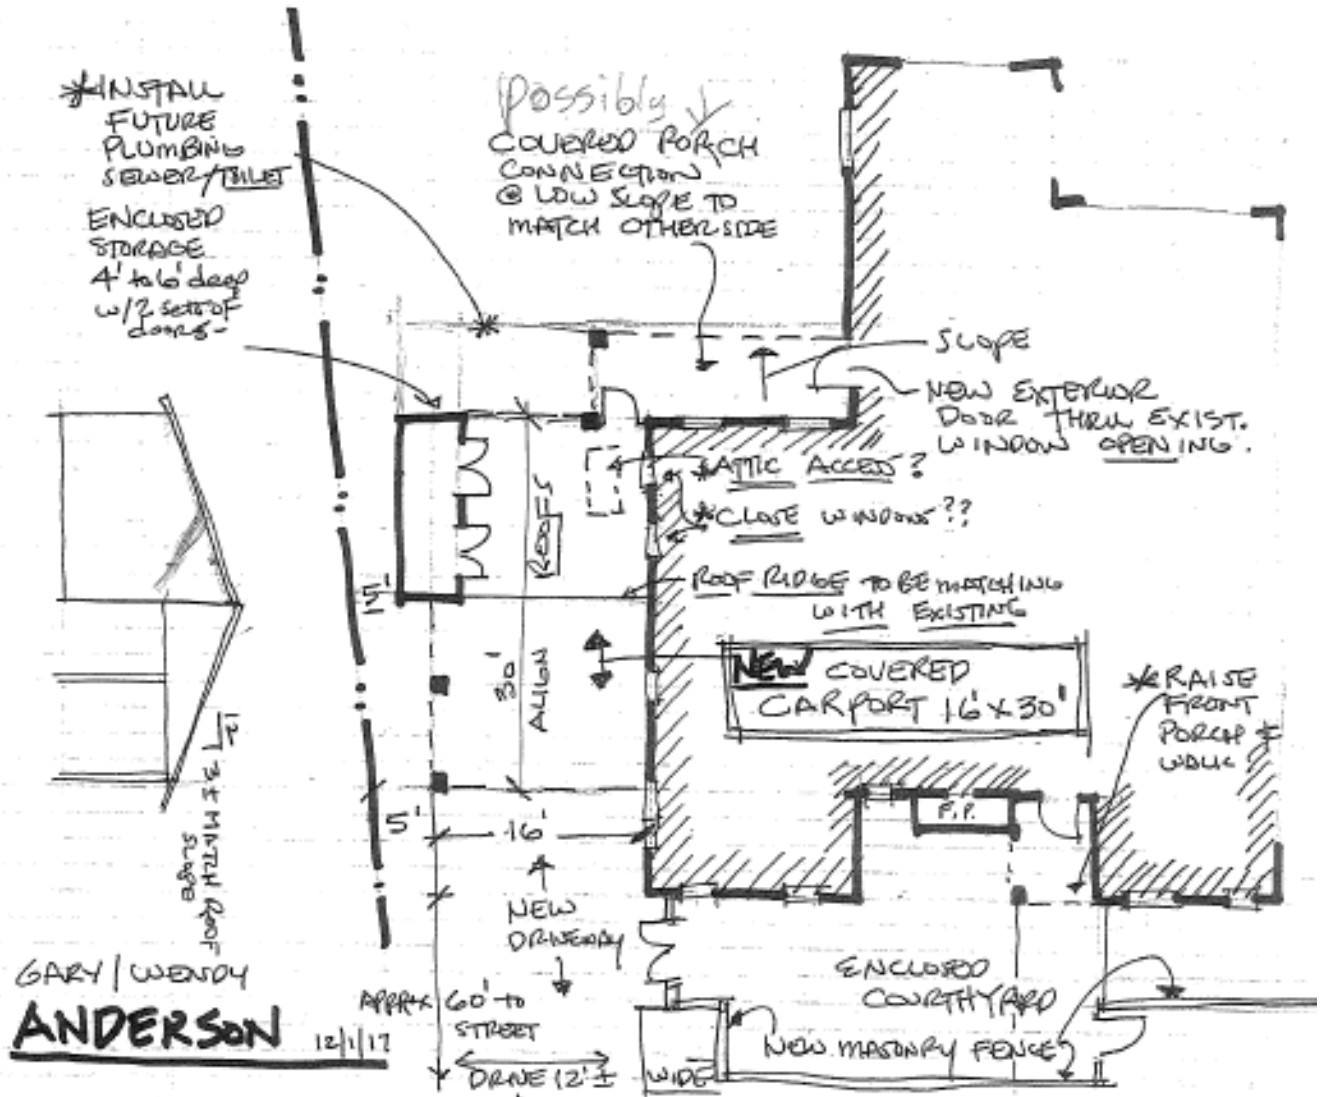 *INSTALL
FUTURE
PLUMBING
SEWER/TOILET
ENCLOSED
STORAGE
4' to 6' deep
w/2 sets of
doors-
Possibly
COVERED PORCH
CONNECTION
@ LOW SLOPE TO
MATCH OTHER SIDE
SLOPE
NEW EXTERIOR
DOOR THRU EXIST.
WINDOW OPENING.
*ATTIC ACCESS?
*CLOSE WINDOWS??
ROOF RIDGE TO BE MATCHING
WITH EXISTING
NEW COVERED
CARPORT 16'X30'
*RAISE
FRONT
PORCH &
WALK
ROOFS
30'
ALIGN
5'
5'
16'
F.P.
12
MATCH ROOF
SLOPE
NEW
DRIVEWAY
APPRX 60' to
STREET
DRIVE 12' ±
WIDE
ENCLOSED
COURTHYARD
NEW MASONRY FENCE
GARY/WENDY
ANDERSON
12/1/17